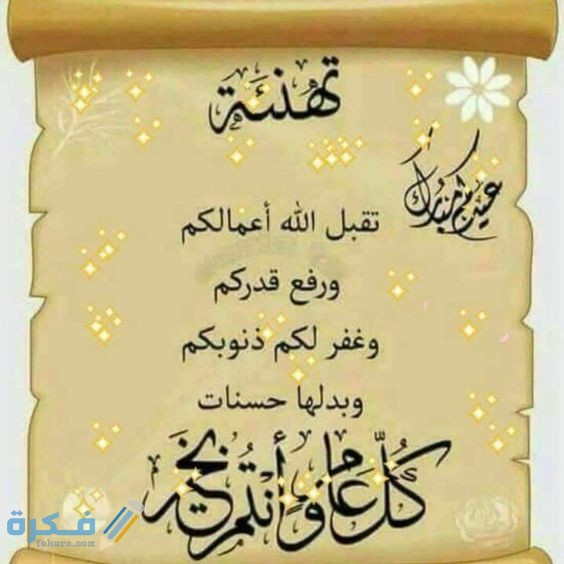 تهنئة
عيدكم مبارك
تقبل الله أعمالكم
ورفع قدركم
وغفر لكم ذنوبكم
وبدلها حسنات
كُلُّ عَامٍ وَأَنْتُمْ بِخَيْرٍ
فكرة
fekera.com